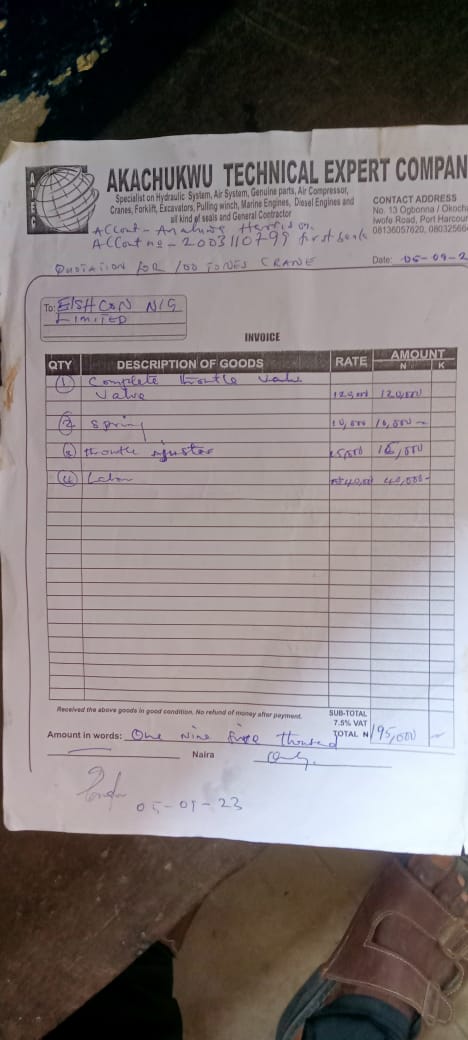 AKACHUKWU TECHNICAL EXPERT COMPAN
Specialist on Hydraulic System, Air System, Genuine parts, Air Compressor,
Cranes, Forklift, Excavators, Pulling winch, Marine Engines, Diesel Engines and
all kind of seals and General Contractor
CONTACT ADDRESS
No. 13 Ogbonna / Okoch
Iwofe Road, Port Harcour
08136057620, 08032566
Account -
Account no - 2003110799 first bank
Date: 05-09-2
QUOTATION FOR 100 TONES CRANE
To: EISHCON NIG
LIMITED
INVOICE
QTY DESCRIPTION OF GOODS RATE AMOUNT
N K
1 Complete throttle valve
Valve 120,000 120,000
2 Spring 10,000 10,000
3 throttle 
4 Labour 40,000 40,000
Received the above goods in good condition. No refund of money after payment.
SUB-TOTAL
7.5% VAT
TOTAL N 195,000
Amount in words: One Nine five thousand
Naira Only.
05-09-23